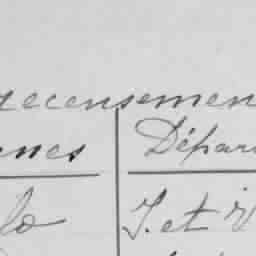 recensemen
nnes Dépar
lo I. et V